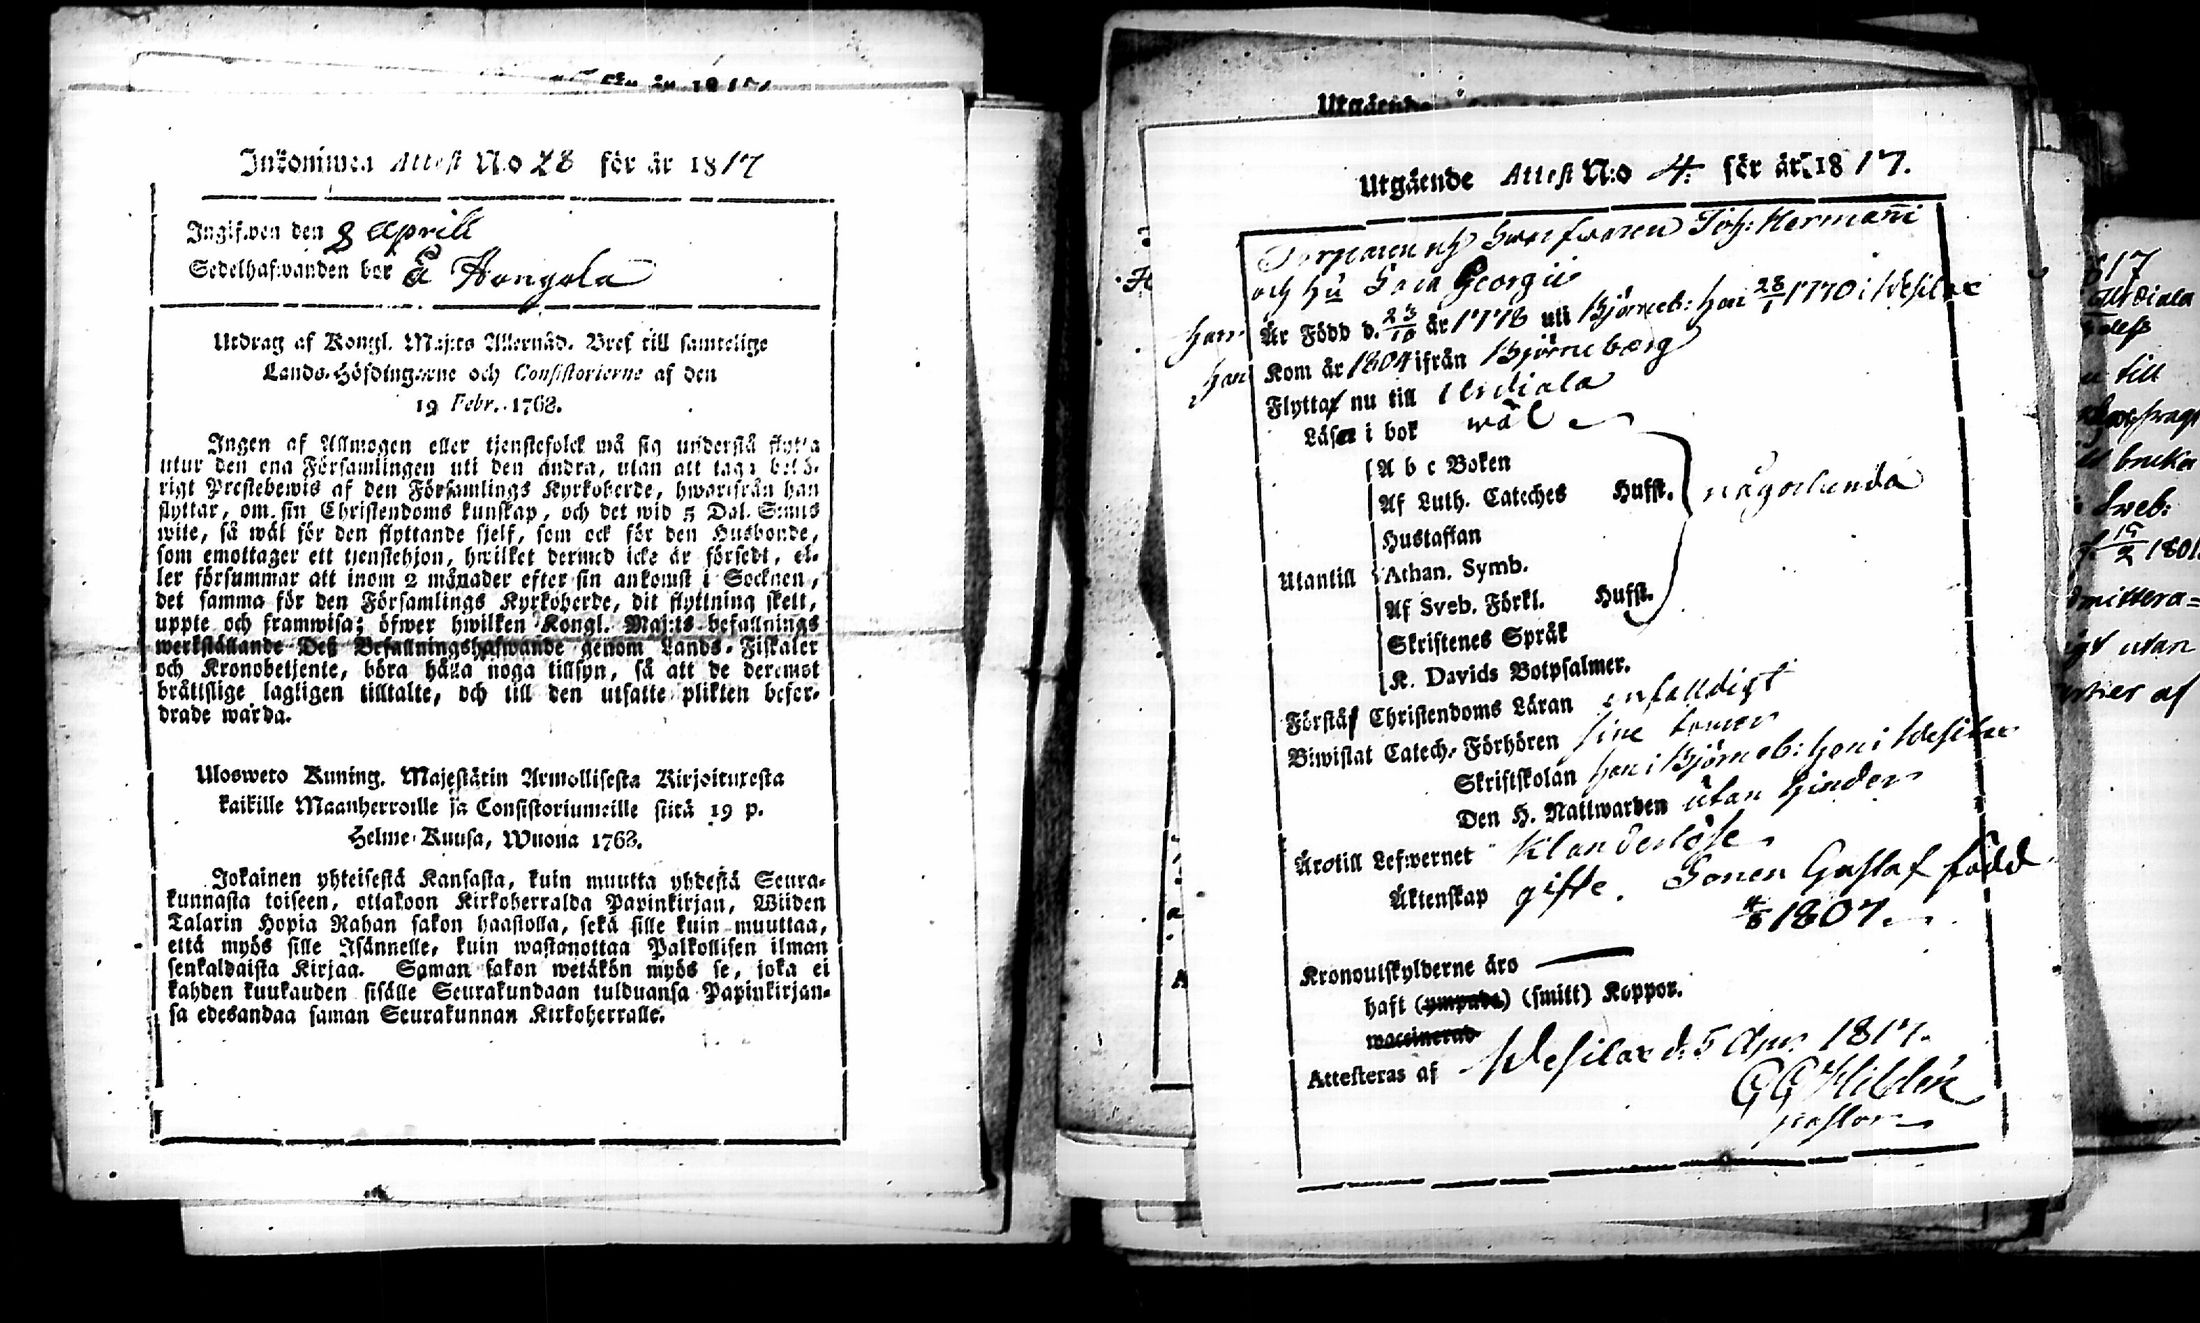 Inkommen Attest N:o 28 för år 1817
Ingifwen den 8 Aprill
Sedelhafwanden bor å Hongola
Utdrag af Kongl. Maj:ts Allernåd. Bref till samtelige
Lands-Höfdingarne och Consistorierne af den
19 Febr. 1768.
Ingen af Allmogen eller tjenstefolck må sig understå flytta
utur den ena Församlingen uti den andra, utan att taga behö-
rigt Prestebewis af den Församlings Kyrkoherde, hwarifrån han
flyttar, om sin Christendoms kunskap, och det wid 5 Dal. S:mts
wite, så wäl för den flyttande sjelf, som ock för den Husbonde,
som emottager ett tjenstehjon, hwilket dermed icke är försedt, el-
ler försummar att inom 2 månader efter sin ankomst i Socknen,
det samma för den Församlings Kyrkoherde, dit flyttning skett,
uppte och framwisa; öfwer hwilken Kongl. Maj:ts befallnings
werkställande Deß Befallningshafwande genom Lands-Fiskaler
och Kronobetjente, böra hålla noga tillsyn, så att de deremot
bråttslige lagligen tilltalte, och till den utsatte plikten befor-
drade warda.
Ulosweto Kuning. Majestätin Armollisesta Kirjoituxesta
kaikille Maanherroille ja Consistoriumeille siitä 19 p.
Helme-Kuusa, Wuona 1768.
Jokainen yhteisestä Kansasta, kuin muutta yhdestä Seura-
kunnasta toiseen, ottakoon Kirkoherralda Papinkirjan, Wiiden
Talarin Hopia Rahan sakon haastolla, sekä sille kuin muuttaa,
että myös sille Isännelle, kuin wastanottaa Palkollisen ilman
senkaldaista Kirjaa. Saman sakon wetäkön myös se, joka ei
kahden kuukauden sisälle Seurakundaan tulduansa Papinkirjan-
sa edesandaa saman Seurakunnan Kirkoherralle.
Utgående Attest N:o 4. för år 1817.
Joh: Hermañi
och hu Georgii
han Är Född d. 23/10 år 1778 uti Björneb: hon 28/1 1770 i Wesilax
han Kom år 1804 ifrån Björneborg
Flytta nu till Urdiala
Läsa i bok wäl
A b c Boken
Af Luth. Cateches Hufst. någorlunda
Hustaflan
Utantill Athan. Symb.
Af Sveb. Förkl. Hufst.
Skriftenes Språk
K. Davids Botpsalmer.
Förstå Christendoms Läran enfalldigt
Biwistat Catech. Förhören sine
Skriftskolan han i Björneb: hon i Wesilax
Den H. Nattwarden utan hinder
Äro till Lefwernet Klanderlöse
Äktenskap gifte. Sonen Gustaf född
1807.
Kronoutskylderne äro
haft (ympade) (smitt) Koppor.
waccinerad
Attesteras af Wesilax d. 5 Apr. 1817.
G G Hildén
pastor